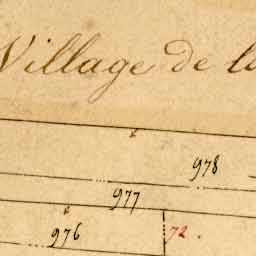 Village de la
978
977
976
72.